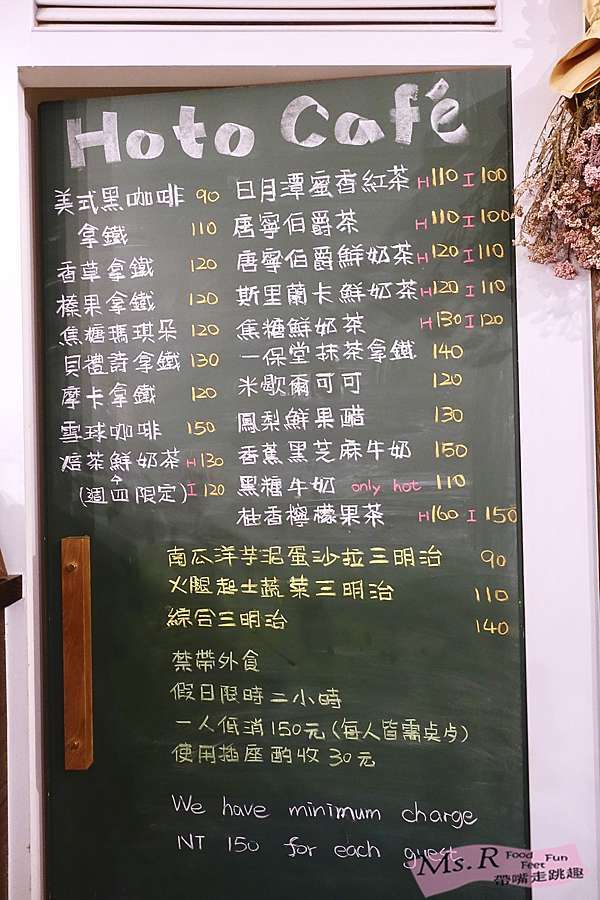 Hoto Café
美式黑咖啡 90
拿鐵 110
香草拿鐵 120
榛果拿鐵 120
焦糖瑪琪朵 120
貝禮詩拿鐵 130
摩卡拿鐵 120
雪球咖啡 150
焙茶鮮奶茶 H130
(週四限定) I 120
日月潭蜜香紅茶 H110 I 100
唐寧伯爵茶 H110 I 100
唐寧伯爵鮮奶茶 H120 I 110
斯里蘭卡鮮奶茶 H120 I 110
焦糖鮮奶茶 H130 I 120
一保堂抹茶拿鐵 140
米歇爾可可 120
鳳梨鮮果醋 130
香蕉黑芝麻牛奶 150
黑糖牛奶 only hot 110
柚香檸檬果茶 H160 I 150
南瓜洋芋泥蛋沙拉三明治 90
火腿起士蔬菜三明治 110
綜合三明治 140
禁帶外食
假日限時二小時
一人低消150元(每人皆需点歺)
使用插座酌收30元
We have minimum charge
NT 150 for each guest
Ms.R Food Feet Fun
帶嘴走跳趣